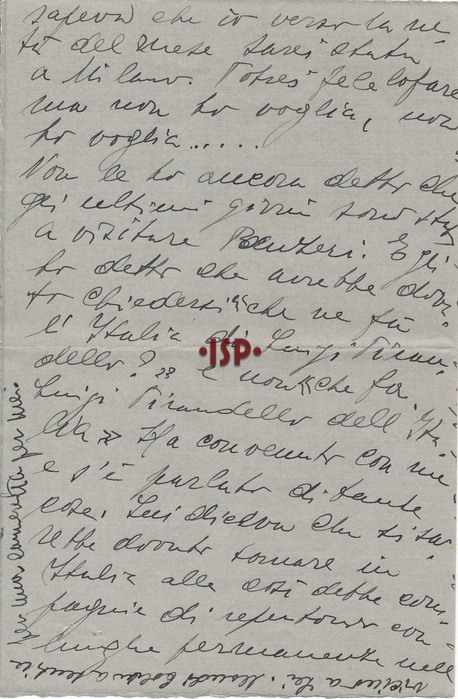 sapeva che io verso la me
tà del mese sarei stata
a Milano. Potrei telefonare
ma non ho voglia, non
ho voglia.....
Non le ho ancora detto che
gli ultimi giorni sono stata
a visitare Ponzeri. E gli
ho detto che avrebbe dovu
to chiedersi "che ne fa
l'Italia di Luigi Piran
dello?" E non "che fa
Luigi Pirandello dell'Ita
lia" Ha convenuto con me
e s'è parlato di tante
cose. Lui diceva che si sa
rebbe dovuto tornare in
Italia alle così dette com
pagnie di repertorio con
lunghe permanenze nelle
·ISP·